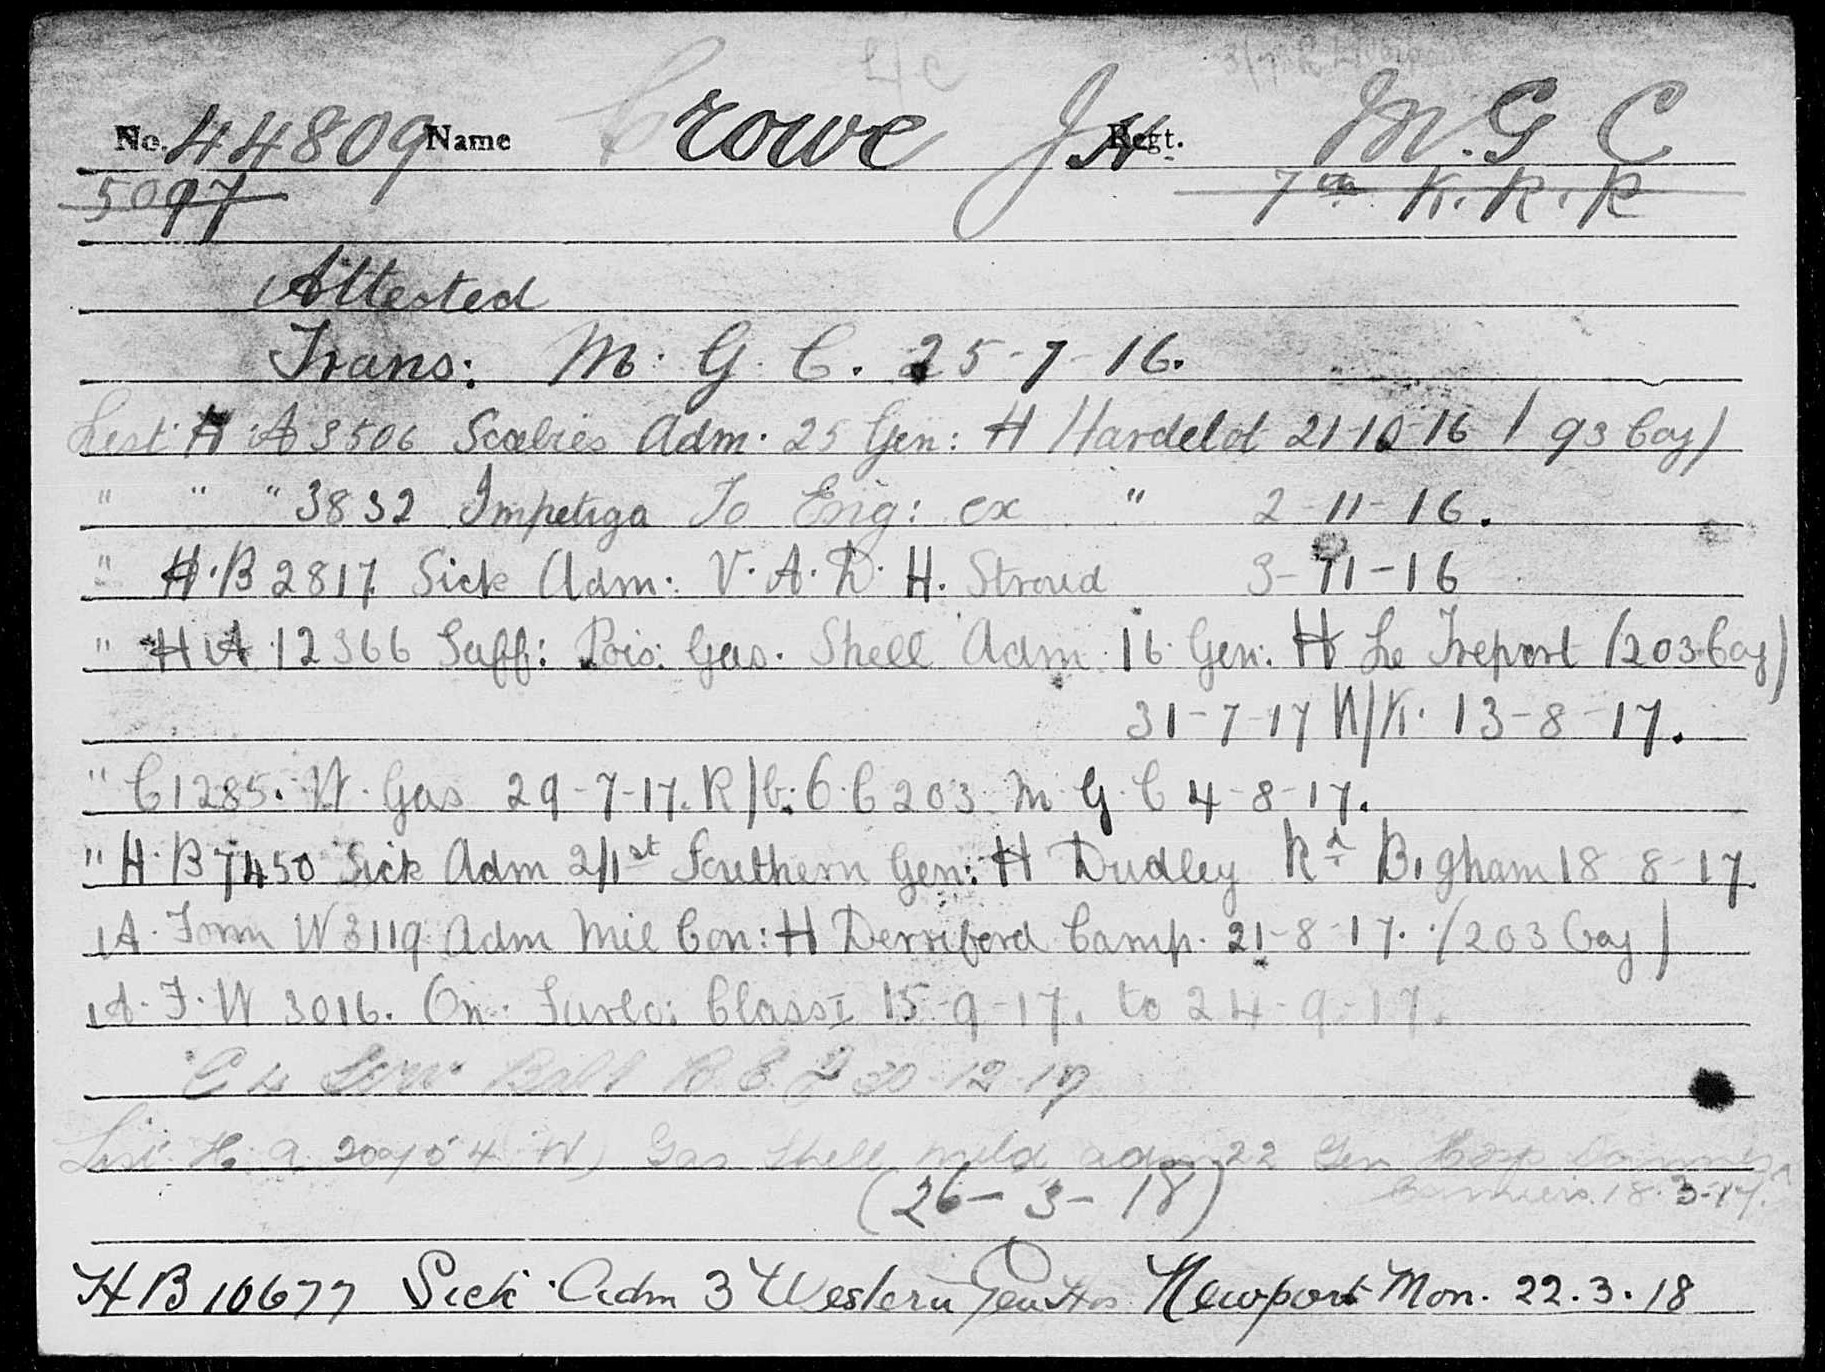 L/C
No. 44809 Name Crowe J H Regt. M.G C
5097 7th K.R.R
Attested
Trans: M. G. C. 25-7-16.
List H A 3506 Scabies Adm. 25 Gen: H Hardelot 21-10-16 (93 Coy)
" " " 3832 Impetiga To Eng: ex " 2-11-16.
" H.B 2817 Sick Adm: V.A.D.H. Stroud 3-11-16
" H A 12366 Suff: Pois: Gas. Shell Adm 16 Gen: H Le Treport (203 Coy)
31-7-17 N/K. 13-8-17.
" C1285. W. Gas 29-7-17. R/b: O.C 203 M G C 4-8-17.
" H.B 7450 Sick Adm 2/1st Southern Gen: H Dudley Rd B,gham 18 8-17
A. Form W3119 Adm Mil Con: H Derriford Camp. 21-8-17. (203 Coy)
A.F.W 3016. On Furlo: Class I 15-9-17. to 24-9-17.
B.E.F 30-12-17
List H. A. W) Gas Shell mild adm 22 Gen Hosp
(26-3-18) Camiers 18.3-17.
H B 10677 Sick Adm 3 Western Gen Hos Newport Mon. 22.3.18